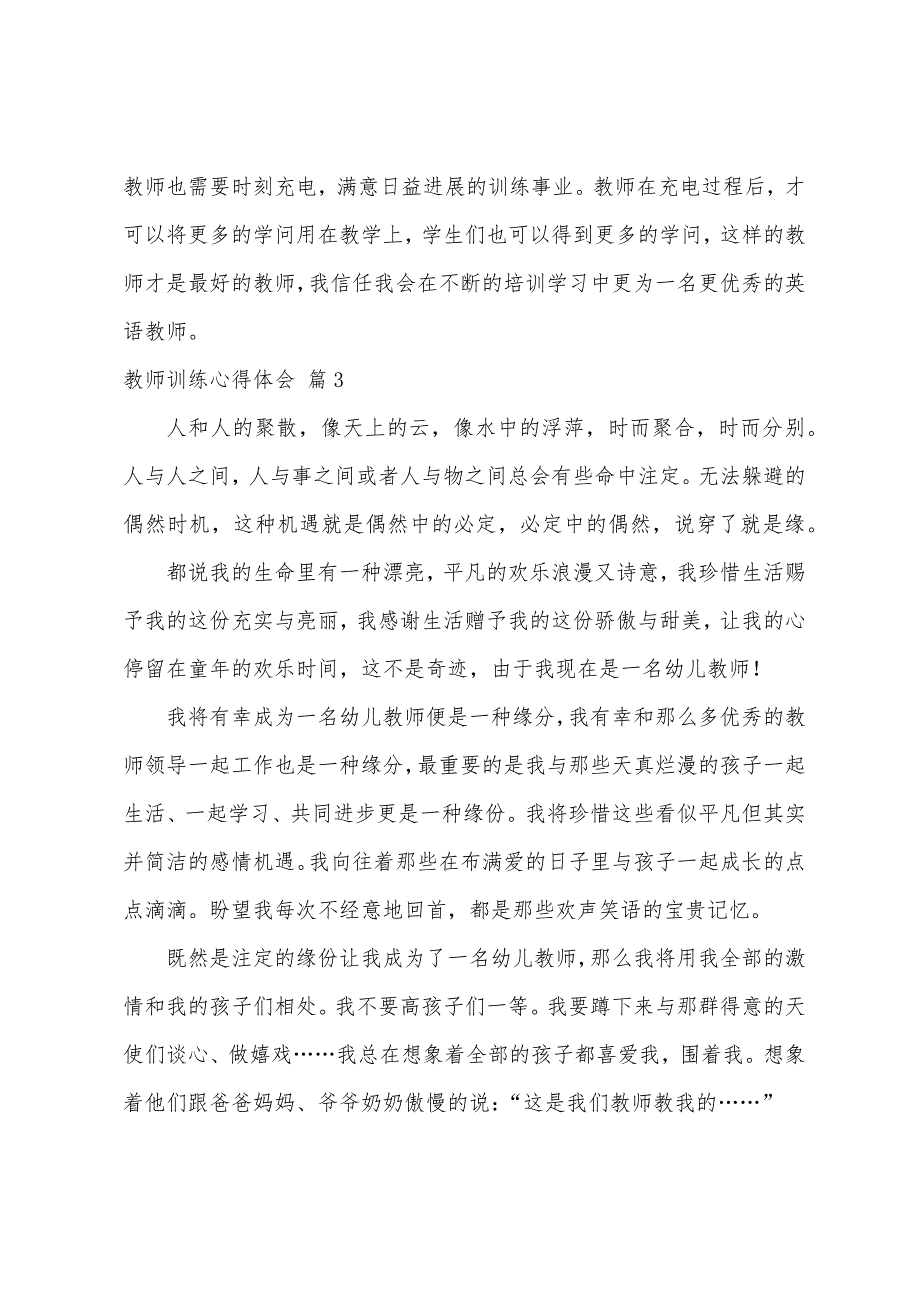 教师也需要时刻充电，满意日益进展的训练事业。教师在充电过程后，才
可以将更多的学问用在教学上，学生们也可以得到更多的学问，这样的教
师才是最好的教师，我信任我会在不断的培训学习中更为一名更优秀的英
语教师。
教师训练心得体会 篇3
人和人的聚散，像天上的云，像水中的浮萍，时而聚合，时而分别。
人与人之间，人与事之间或者人与物之间总会有些命中注定。无法躲避的
偶然时机，这种机遇就是偶然中的必定，必定中的偶然，说穿了就是缘。
都说我的生命里有一种漂亮，平凡的欢乐浪漫又诗意，我珍惜生活赐
予我的这份充实与亮丽，我感谢生活赠予我的这份骄傲与甜美，让我的心
停留在童年的欢乐时间，这不是奇迹，由于我现在是一名幼儿教师！
我将有幸成为一名幼儿教师便是一种缘分，我有幸和那么多优秀的教
师领导一起工作也是一种缘分，最重要的是我与那些天真烂漫的孩子一起
生活、一起学习、共同进步更是一种缘份。我将珍惜这些看似平凡但其实
并简洁的感情机遇。我向往着那些在布满爱的日子里与孩子一起成长的点
点滴滴。盼望我每次不经意地回首，都是那些欢声笑语的宝贵记忆。
既然是注定的缘份让我成为了一名幼儿教师，那么我将用我全部的激
情和我的孩子们相处。我不要高孩子们一等。我要蹲下来与那群得意的天
使们谈心、做嬉戏……我总在想象着全部的孩子都喜爱我，围着我。想象
着他们跟爸爸妈妈、爷爷奶奶傲慢的说：“这是我们教师教我的……”